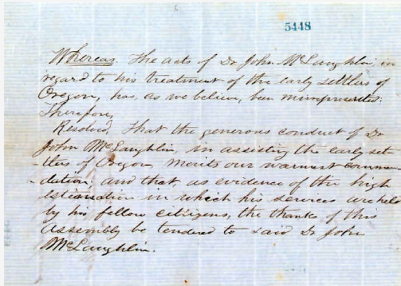 5448
Whereas The acts of Dr John McLaughlin in
regard to his treatment of the early settlers of
Oregon, has, as we believe, been misrepresented.
Therefore,
Resolved, That the generous conduct of Dr
John McLaughlin, in assisting the early set-
-tlers of Oregon, merits our warmest commen-
-dation, and that, as evidence of the high
estimation in which his services are held
by his fellow citizens, the thanks of this
assembly be tendered to said Dr John
McLaughlin.